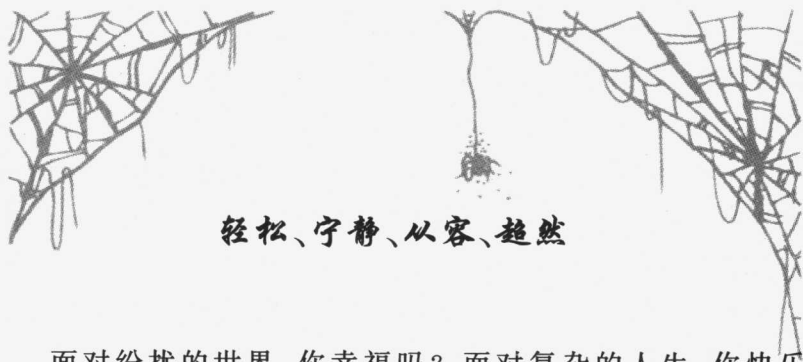 轻松、宁静、从容、超然
面对纷扰的世界,你幸福吗?面对复杂的人生,你快乐